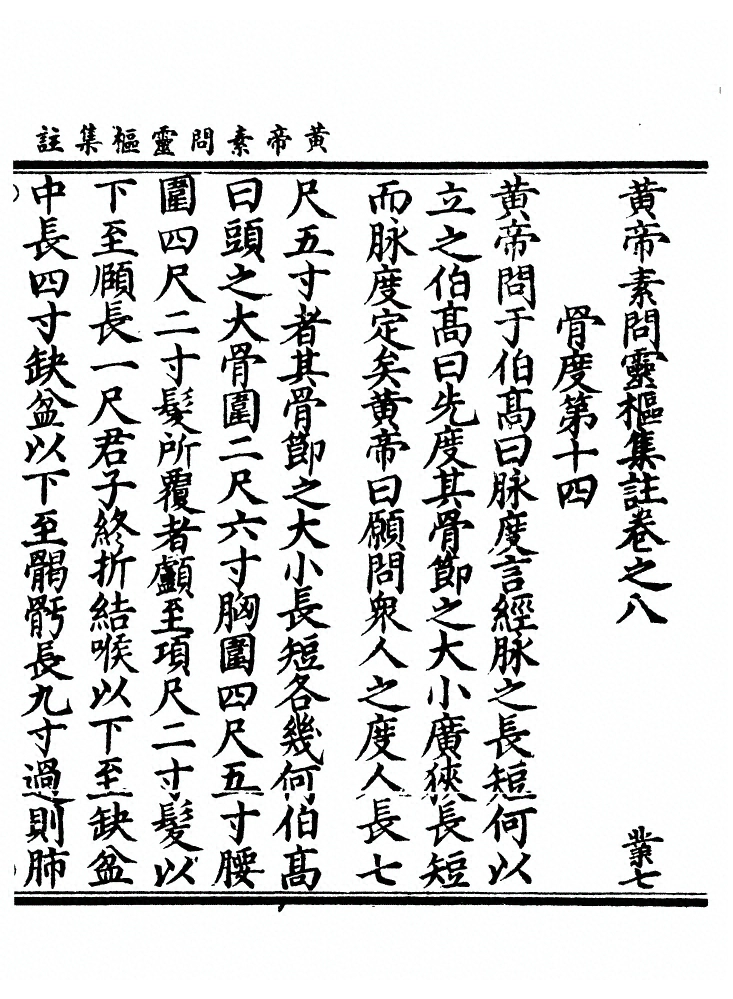 黃帝素問靈樞集註
黃帝素問靈樞集註卷之八
業七
骨度第十四
黃帝問于伯髙曰脉度言經脉之長短何以
立之伯髙曰先度其骨節之大小廣狹長短
而脉度定矣黃帝曰願問衆人之度人長七
尺五寸者其骨節之大小長短各幾何伯髙
曰頭之大骨圍二尺六寸胸圍四尺五寸腰
圍四尺二寸髮所覆者顱至項尺二寸髮以
下至頤長一尺君子終折結喉以下至缺盆
中長四寸缺盆以下至𩩲骬長九寸過則肺